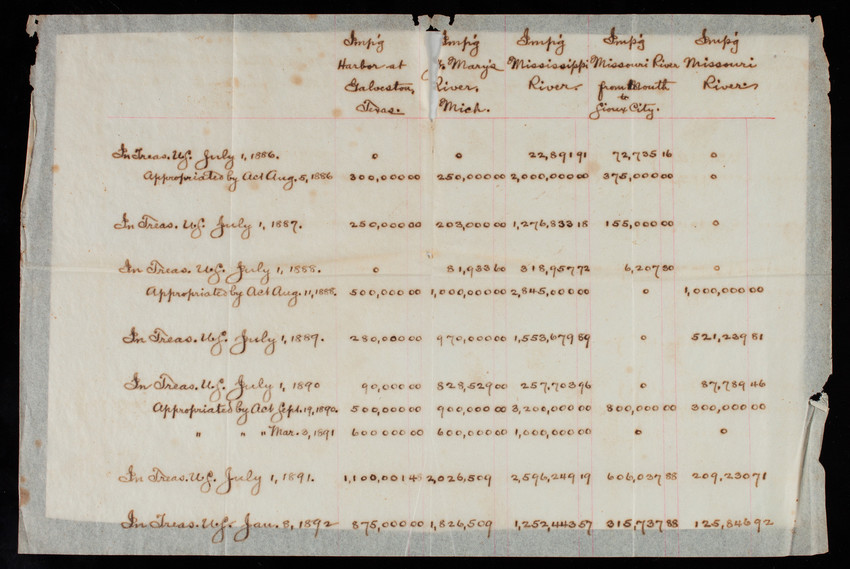 Imp'g Imp'g Imp'g Imp'g Imp'g
Harbor at Mary's Mississippi Missouri River Missouri
Galveston, River, River. from Mouth River.
Texas. Mich. to Sioux City.
In Treas. U.S. July 1, 1886. 0 0 22,891 91 72,735 16 0
Appropriated by Act Aug. 5, 1886 300,000 00 250,000 00 2,000,000 00 375,000 00 0
In Treas. U.S. July 1, 1887. 250,000 00 203,000 00 1,276,833 18 155,000 00 0
In Treas. U.S. July 1, 1888. 0 81,933 60 318,957 72 6,207 30 0
Appropriated by Act Aug. 11, 1888. 500,000 00 1,000,000 00 2,845,000 00 0 1,000,000 00
In Treas. U.S. July 1, 1887. 280,000 00 970,000 00 1,553,679 89 0 521,239 81
In Treas. U.S. July 1, 1890 90,000 00 828,529 00 257,703 96 0 87,789 46
Appropriated by Act Sept. 19, 1890. 500,000 00 900,000 00 3,200,000 00 800,000 00 300,000 00
" " " Mar. 3, 1891 600 000 00 600,000 00 1,000,000 00 0 0
In Treas. U.S. July 1, 1891. 1,100,001 48 2,026,509 2,596,249 19 606,037 88 209,230 71
In Treas. U.S. Jan. 8, 1892 875,000 00 1,826,509 1,252,443 57 315,737 88 125,846 92